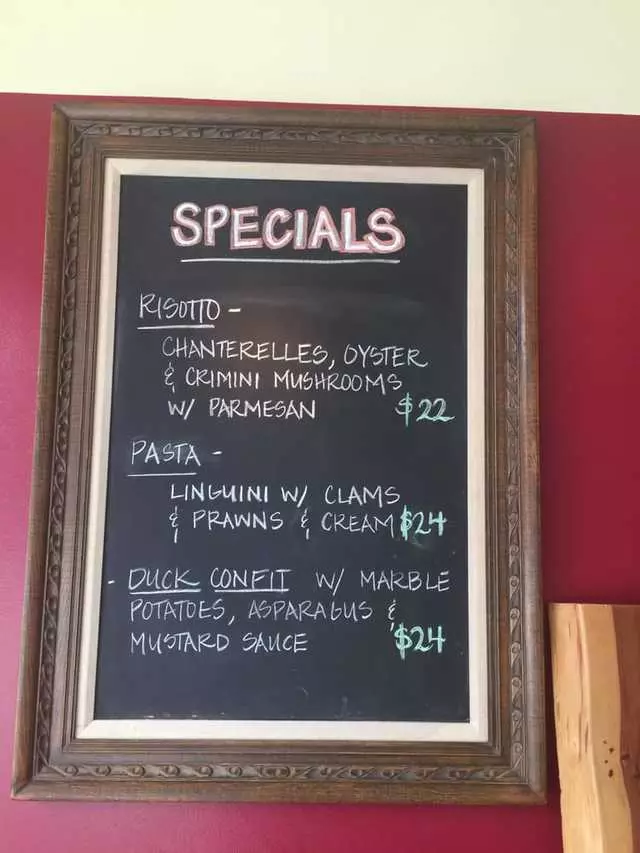 SPECIALS
RISOTTO -
CHANTERELLES, OYSTER
& CRIMINI MUSHROOMS
W/ PARMESAN $22
PASTA -
LINGUINI W/ CLAMS
& PRAWNS & CREAM $24
- DUCK CONFIT W/ MARBLE
POTATOES, ASPARAGUS &
MUSTARD SAUCE $24